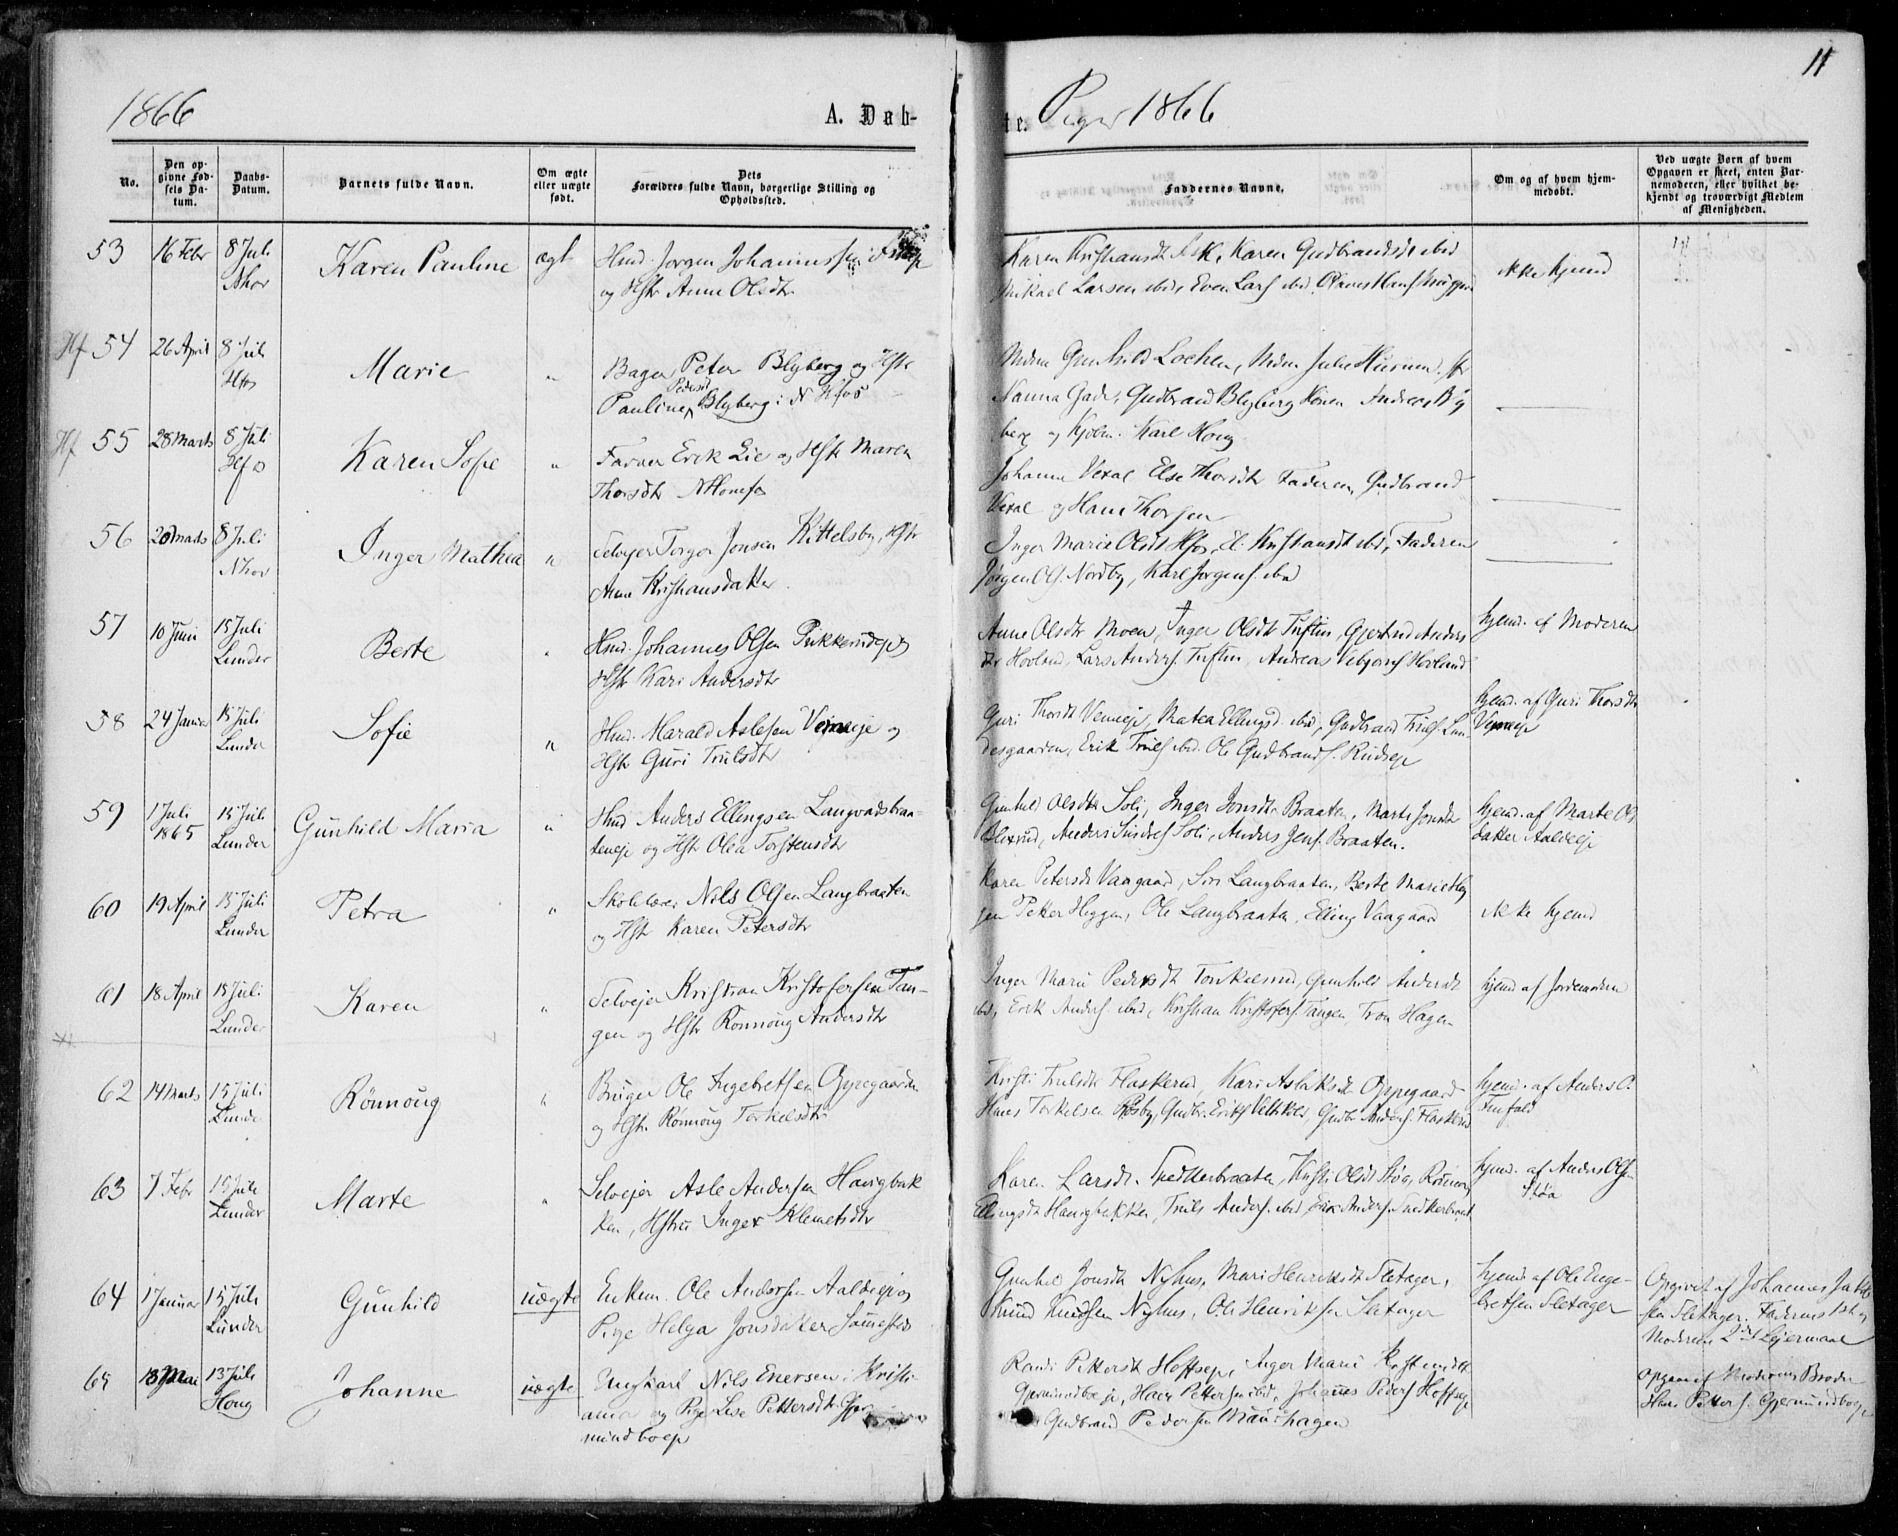 11
1866
A. Døb-
te. Piger 1866
No.
Den op-
givne Fød-
sels Da-
tum.
Daabs-
Datum.
Barnets fulde Navn.
Om ægte
eller uægte
født.
Dets
Forældres fulde Navn, borgerlige Stilling og
Opholdssted.
Faddernes Navne.
Om og af hvem hjem-
medøbt.
Ved uægte Børn af hvem
Opgaven er skeet, enten Bar-
nemoderen, eller hvilket be-
kjendt og troværdigt Medlem
af Menigheden.
53 16 Febr 8 Juli Karen Pauline ægt Hmd. Jørgen Johannessen
Nhov og Hstr Anne Olsdtr
Karen Kristiansdt Ask, Karen Gudbrandsdt ibid
Mikael Larsen ibid, Even Lars ibid, Olaves Hans
ikke hjemd
Hf 54 26 April 8 Juli Marie " Bager Peter Blyberg og Hstr
Hfos Pauline Pedersd Blyberg i N Hfos
Mdm Gunhild Lochen, Mdm Julie Husum, Jfr
Nanna Gade, Gudbrand Blyberg Andreas Bly
berg og Kjøbm. Karl Houg
Hf 55 28 Marts 8 Juli Karen Sofie " Farver Erik Lie og Hstr Maren
Hfos Thorsdtr NHonefos
Johanne Vexal Else Thorsdtr Faderen, Gudbrand
Vexal og Hans Thorsen
56 20 Marts 8 Juli Inger Mathea " Selvejer Torger Jonsen Kittelsby, Hstr
Nhov Anne Kristiansdatter.
Inger Marie Olsdt Hfos, El. Kristiansdt ibid, Faderen
Jørgen Ols. Nordby, Karl Jorgens. ibid
57 10 Juni 15 Juli Berte " Hmd. Johannes Olsen Pukkerudejet
Lunder Hstr Kari Andersdtr
Anne Olsdtr Moen, Inger Olsdt Tuftin, Gjertrud Anders
dtr Hovland, Lars Anders. Tuftin, Andreas Vebjørns Hovland
hjemd. af Moderen
58 24 Januar 15 Juli Sofie " Hmd. Harald Aslesen Vemeje og
Lunder Hstr Guri Trulsdtr
Guri Thorsdt Vemeje, Mathea Ellingsd ibid, Gudbrand Truls. Lun-
desgaarden, Erik Truls ibid. Ole Gudbrands. Rudseje
hjemd. af Guri Thorsdt
Vemeje
59 1 Juli 15 Juli Gunhild Maria " Hmd Anders Ellingsen Langvadsbraa-
1865 Lunder teneje og Hstr Olea Torstensdtr
Gunhild Olsdtr Soli, Inger Jonsdtr Braaten, Marte Jonsdtr
Anders Sindres Soli, Anders Jens. Braaten.
hjemd. af Marte Ols
datter Aaldeeje
60 19 April 15 Juli Petra " Skolelærer Nils Olsen Langbraaten
Lunder og Hstr Karen Petersdtr
Karen Petersdt Vaagaard, Siri Langbraaten, Berte Marie Heg
gen Petter Heggen, Ole Langbraaten, Elling Vaagaard
ikke hjemd
61 18 April 15 Juli Karen " Selvejer Kristian Kristofersen Tan-
Lunder gen og Hstr Rønnoug Andersdtr
Inger Marie Pedersdt Torkelsrud, Gunhild Andersdt
ibid, Erik Anders ibid, Kristian Kristofers. Tangen, Tron Hagen
hjemd af Jordemoderen
62 14 Marts 15 Juli Rønnoug " Bruger Ole Ingebretsen Oppegaarden
Lunder og Hstr. Rønnoug Torkelsdtr
Kristi Trulsdt Flaskerud, Kari Aslaksdt Oppegaard
Hans Torkelsen Røsby, Gudbr. Eriks Veltkolt, Gudbr Anders. Flaskerud
hjemd. af Anders O.
63 7 Febr 15 Juli Marte " Selvejer Asle Andersen Haugbak
Lunder ken, Hstru Inger Klemetsdtr
Karen Larsdt. Snedkerbraaten, Kristi Olsdt Støa, Rønnoug
Ellingsdt Haugbakken, Truls Anders. ibid, Erik Anders. Snedkerbraat
hjemd. af Anders Olsen
Støa
64 1 Januar 15 Juli Gunhild uægte Enkem. Ole Andersen Aaldeeje og
Lunder Pige Helga Jonsdatter Sammesteds
Gunhil Jonsdt Nyhus, Mari Henriksdt Sletager,
Knud Knudsen Nyhus, Ole Henriksen Sletager
hjemd. af Ole Enge-
bretsen Sletager
Opgivet af Johannes Jakob
sen Sletager. Faderens 1ste og
Moderens 2det Lejermaal
65 18 Mai 13 Juli Johanne uægte Ungkarl Nils Enersen i Kristi-
Houg ania og Pige Lise Pettersdt Gjer
mundboeje
Randi Pettersdt Hoffseje, Inger Marie
Gjermundboeje, Hans Pettersen ibid, Johannes Peders Hoffseje
Gudbrand Pedersen
Opgave af Moderens Broder
Hans Petters. Gjermundboeje